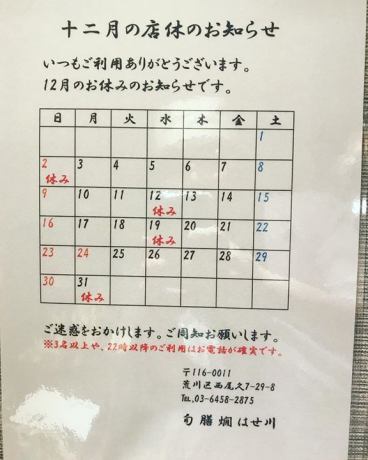 十二月の店休のお知らせ
いつもご利用ありがとうございます。
12月のお休みのお知らせです。
日 月 火 水 木 金 土
1
2 3 4 5 6 7 8
休み
9 10 11 12 13 14 15
休み
16 17 18 19 20 21 22
休み
23 24 25 26 27 28 29
30 31
休み
ご迷惑をおかけします。ご周知お願いします。
※3名以上や、22時以降のご利用はお電話が確実です。
〒116-0011
荒川区西尾久7-29-8
TEL,03-6458-2875
旬膳燗 はせ川